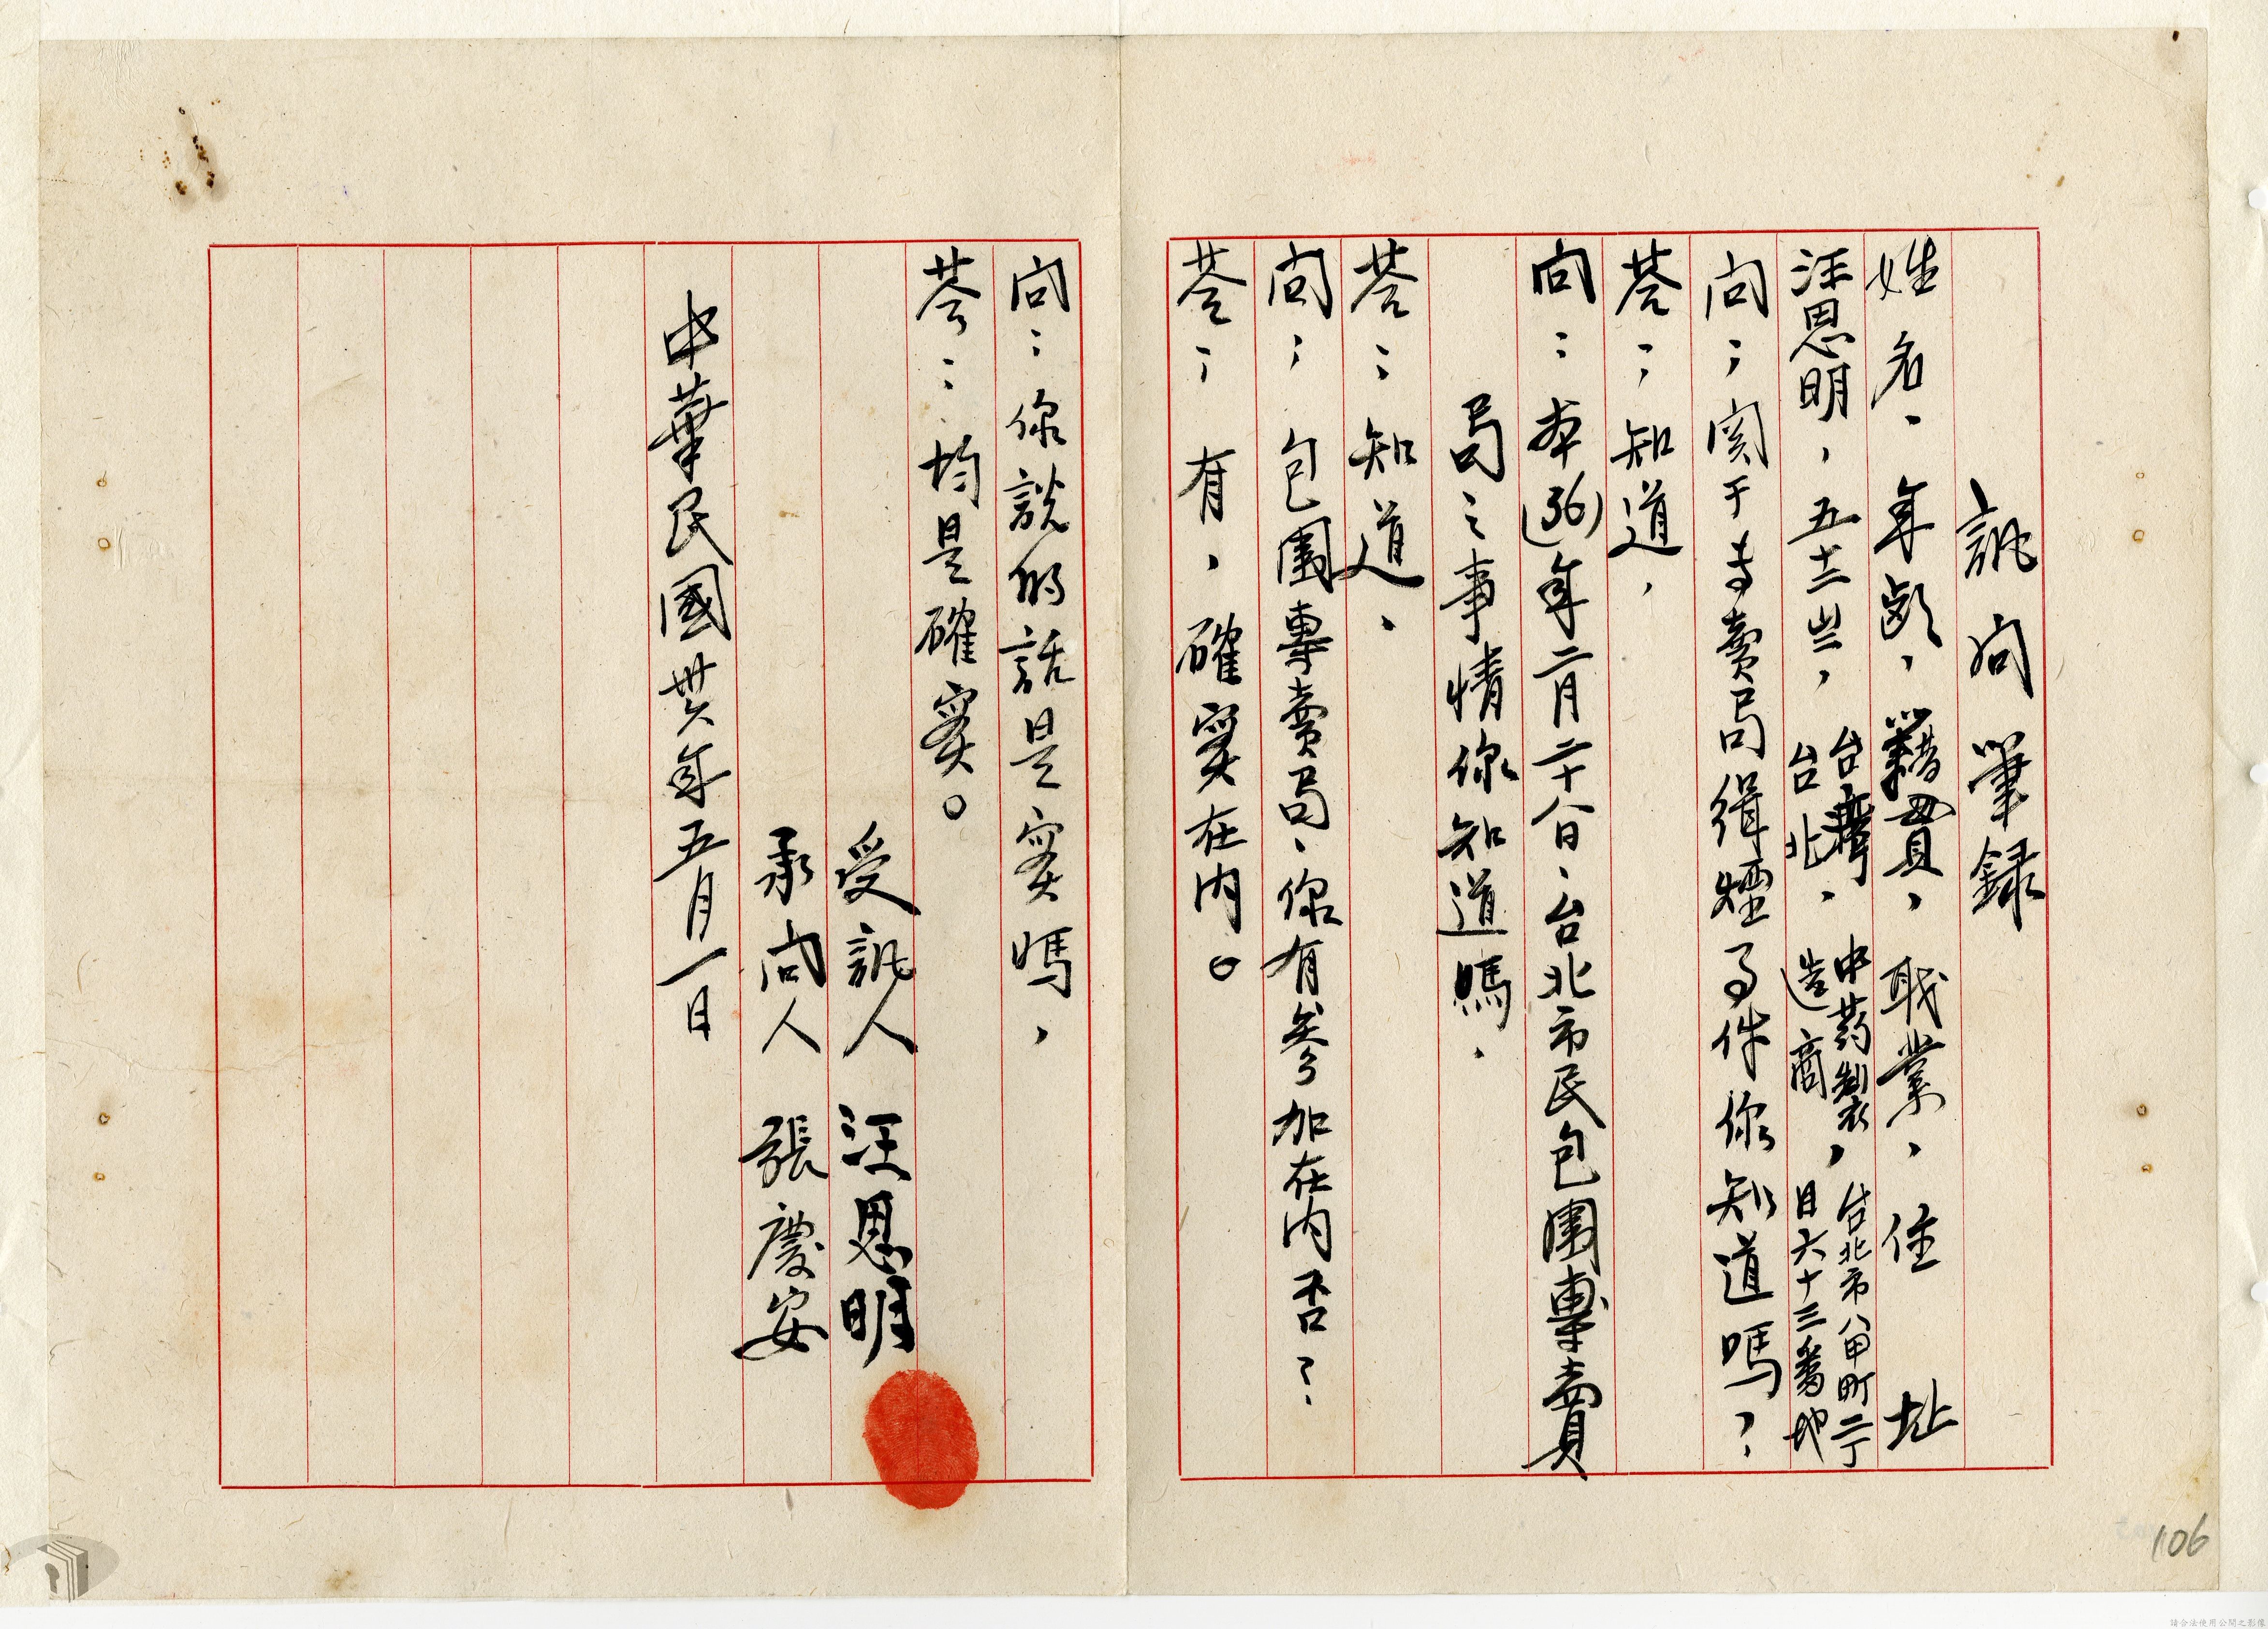 訊问筆録
姓名、年齡,籍貫,職業,住址
汪思明,五十三岁,台灣台北、中药製造商,台北市八甲町二丁目六十三番地
问;関于专賣局缉煙事件你知道嗎?
荅;知道,
问:本(36)年二月二十八日、台北市民包圍專賣
局之事情你知道嗎、
荅:知道、
问;包圍專賣局、你有參加在内否?
荅;有,確实在内。
问:你説的話是实嗎,
荅:均是確实。
受訊人 汪思明
承问人 張慶安
中華民國卅六年五月一日
106
請合法使用公開之影像